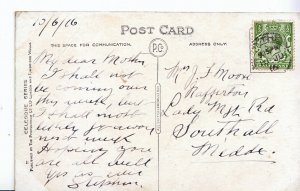 10/6/16
POST CARD
THIS SPACE FOR COMMUNICATION.
ADDRESS ONLY.
My dear Mother
I shall not
be coming over
this week, but
I shall most
likely go away
next week
Hoping you
are all well
Yrs as ever
Stephen
Mrs J. Moore
Lady Mgt Rd
Southall
Middx.
CELESQUE SERIES